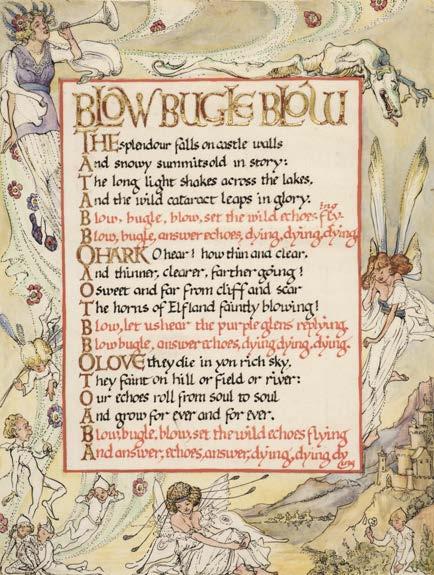 BLOW BUGLE BLOW
THE splendour falls on castle walls
And snowy summits old in story:
The long light shakes across the lakes,
And the wild cataract leaps in glory.
Blow, bugle, blow, set the wild echoes flying
Blow, bugle, answer echoes, dying, dying, dying
O HARK O hear! how thin and clear,
And thinner, clearer, farther going!
O sweet and far from cliff and scar
The horns of Elfland faintly blowing!
Blow, let us hear the purple glens replying,
Blow bugle, answer echoes, dying dying, dying.
O LOVE they die in yon rich sky,
They faint on hill or field or river:
Our echoes roll from soul to soul
And grow for ever and for ever.
Blow, bugle, blow, set the wild echoes flying
And answer, echoes, answer, dying, dying dying